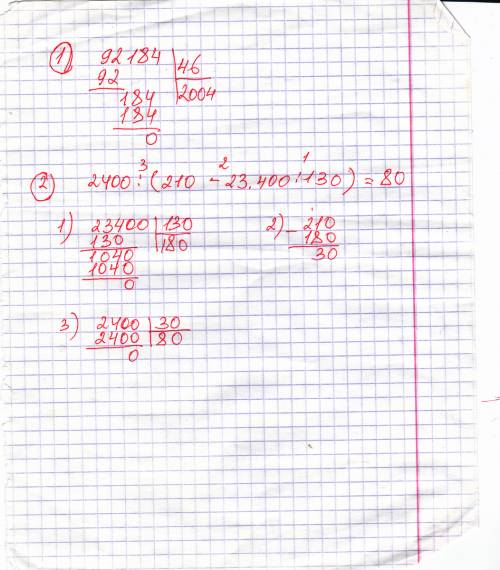 1) 92184 | 46
92 | 2004
184
184
0
3 2 1
2) 2400 : (210 - 23.400 : 130) = 80
1) 23400 | 130
130 | 180
1040
1040
0
2) - 210
180
30
3) 2400 | 30
2400 | 80
0